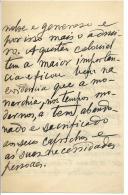 nobre e generoso e
por isso mais o admi-
ro. A questão colonial
tem a maior importan-
cia e ficou bem na
evidencia que a mo-
narchia, nos tempos mo-
dernos, a tem abando-
nado e sacrificado
aos seus caprichos e
ás suas necessidades
pessoaes.